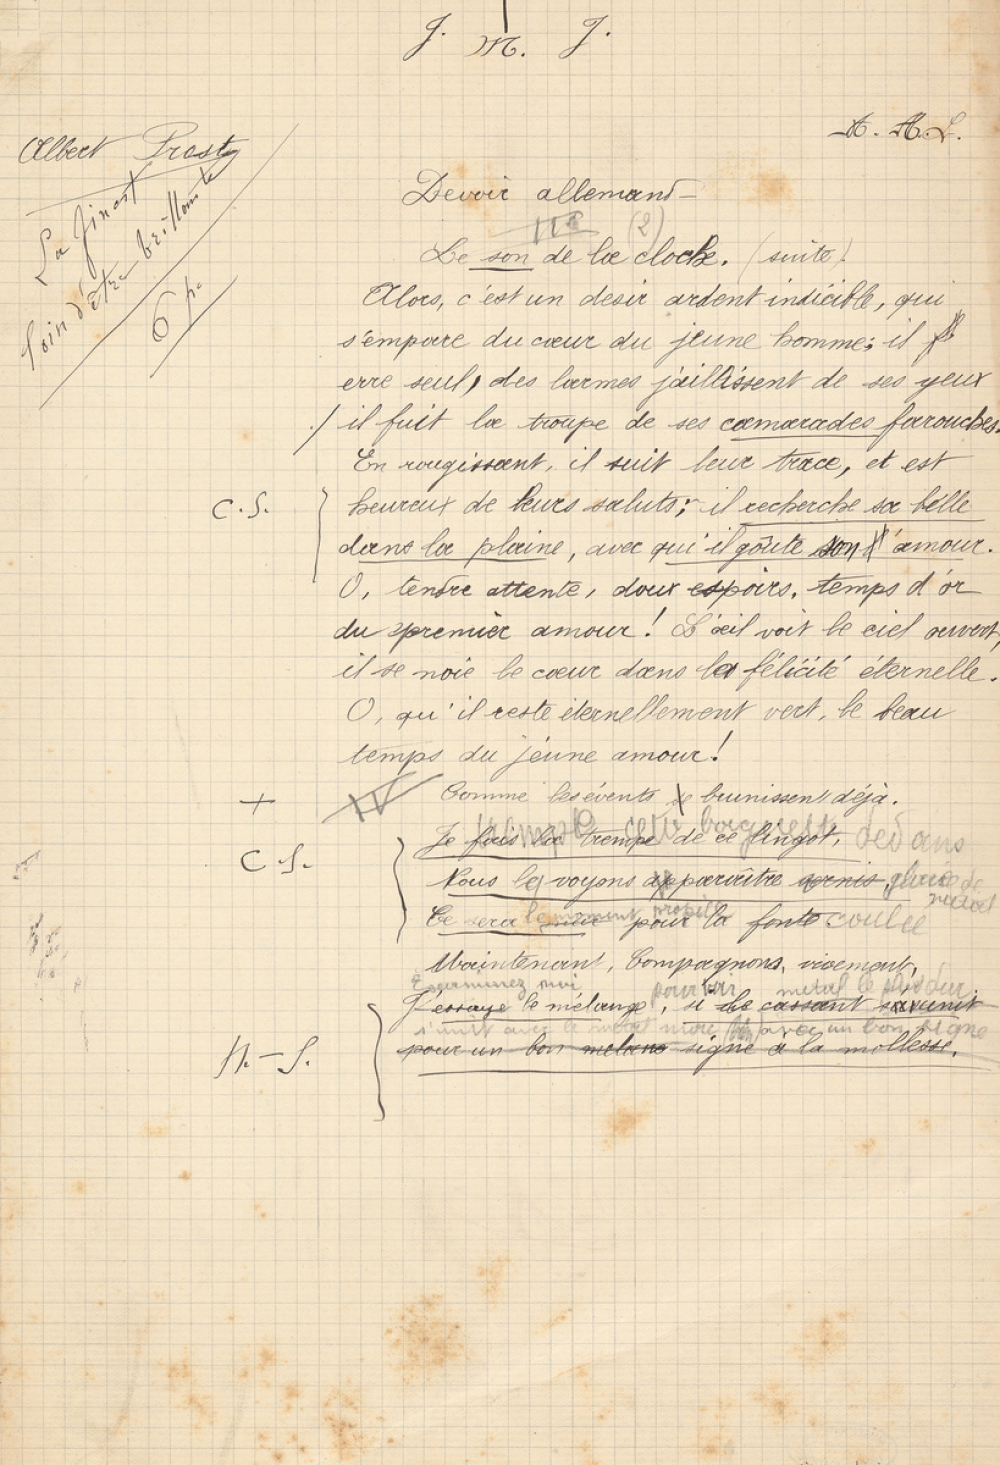 J. M. J.
A. M. L.
Albert Prost
La fin est
loin d'être brillante
6 p.
Devoir allemand
III (2)
Le son de la cloche. (suite).
Alors, c'est un desir ardent indicible, qui
s'empare du cœur du jeune homme; il
erre seul, des larmes jaillissent de ses yeux
./ il fuit la troupe de ses camarades farouches.
En rougissant, il suit leur trace, et est
C.S. heureux de leurs saluts; il recherche sa belle
dans la plaine, avec qu'il goûte son l'amour.
O, tendre attente, doux espoirs, temps d'or
du premier amour! L'œil voit le ciel ouvert,
il se noie le cœur dans la félicité éternelle.
O, qu'il reste éternellement vert, le beau
temps du jeune amour!
+ IV Comme les évents se brunissent déjà.
trempe cette baguette dedans
C.S. Je fais la trempe de ce lingot,
Nous le voyons apparaître vernis, glacé de
métal
Ce sera le moment propice pour la fonte coulée
Maintenant, Compagnons, vivement,
Examinez moi pour voir métal le plus dur
J'essaye le mélange, si le cassant s'unit
s'unit avec le métal mou avec un bon signe
M.-S. pour un bon signe à la mollesse.